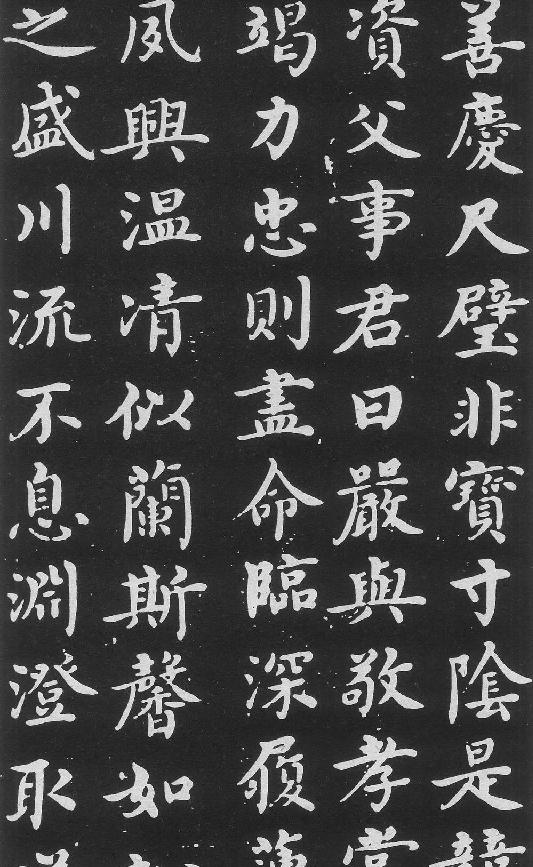 善慶尺璧非寶寸陰是競
資父事君曰嚴與敬孝當
竭力忠則盡命臨深履薄
夙興温凊似蘭斯馨如
之盛川流不息淵澄取